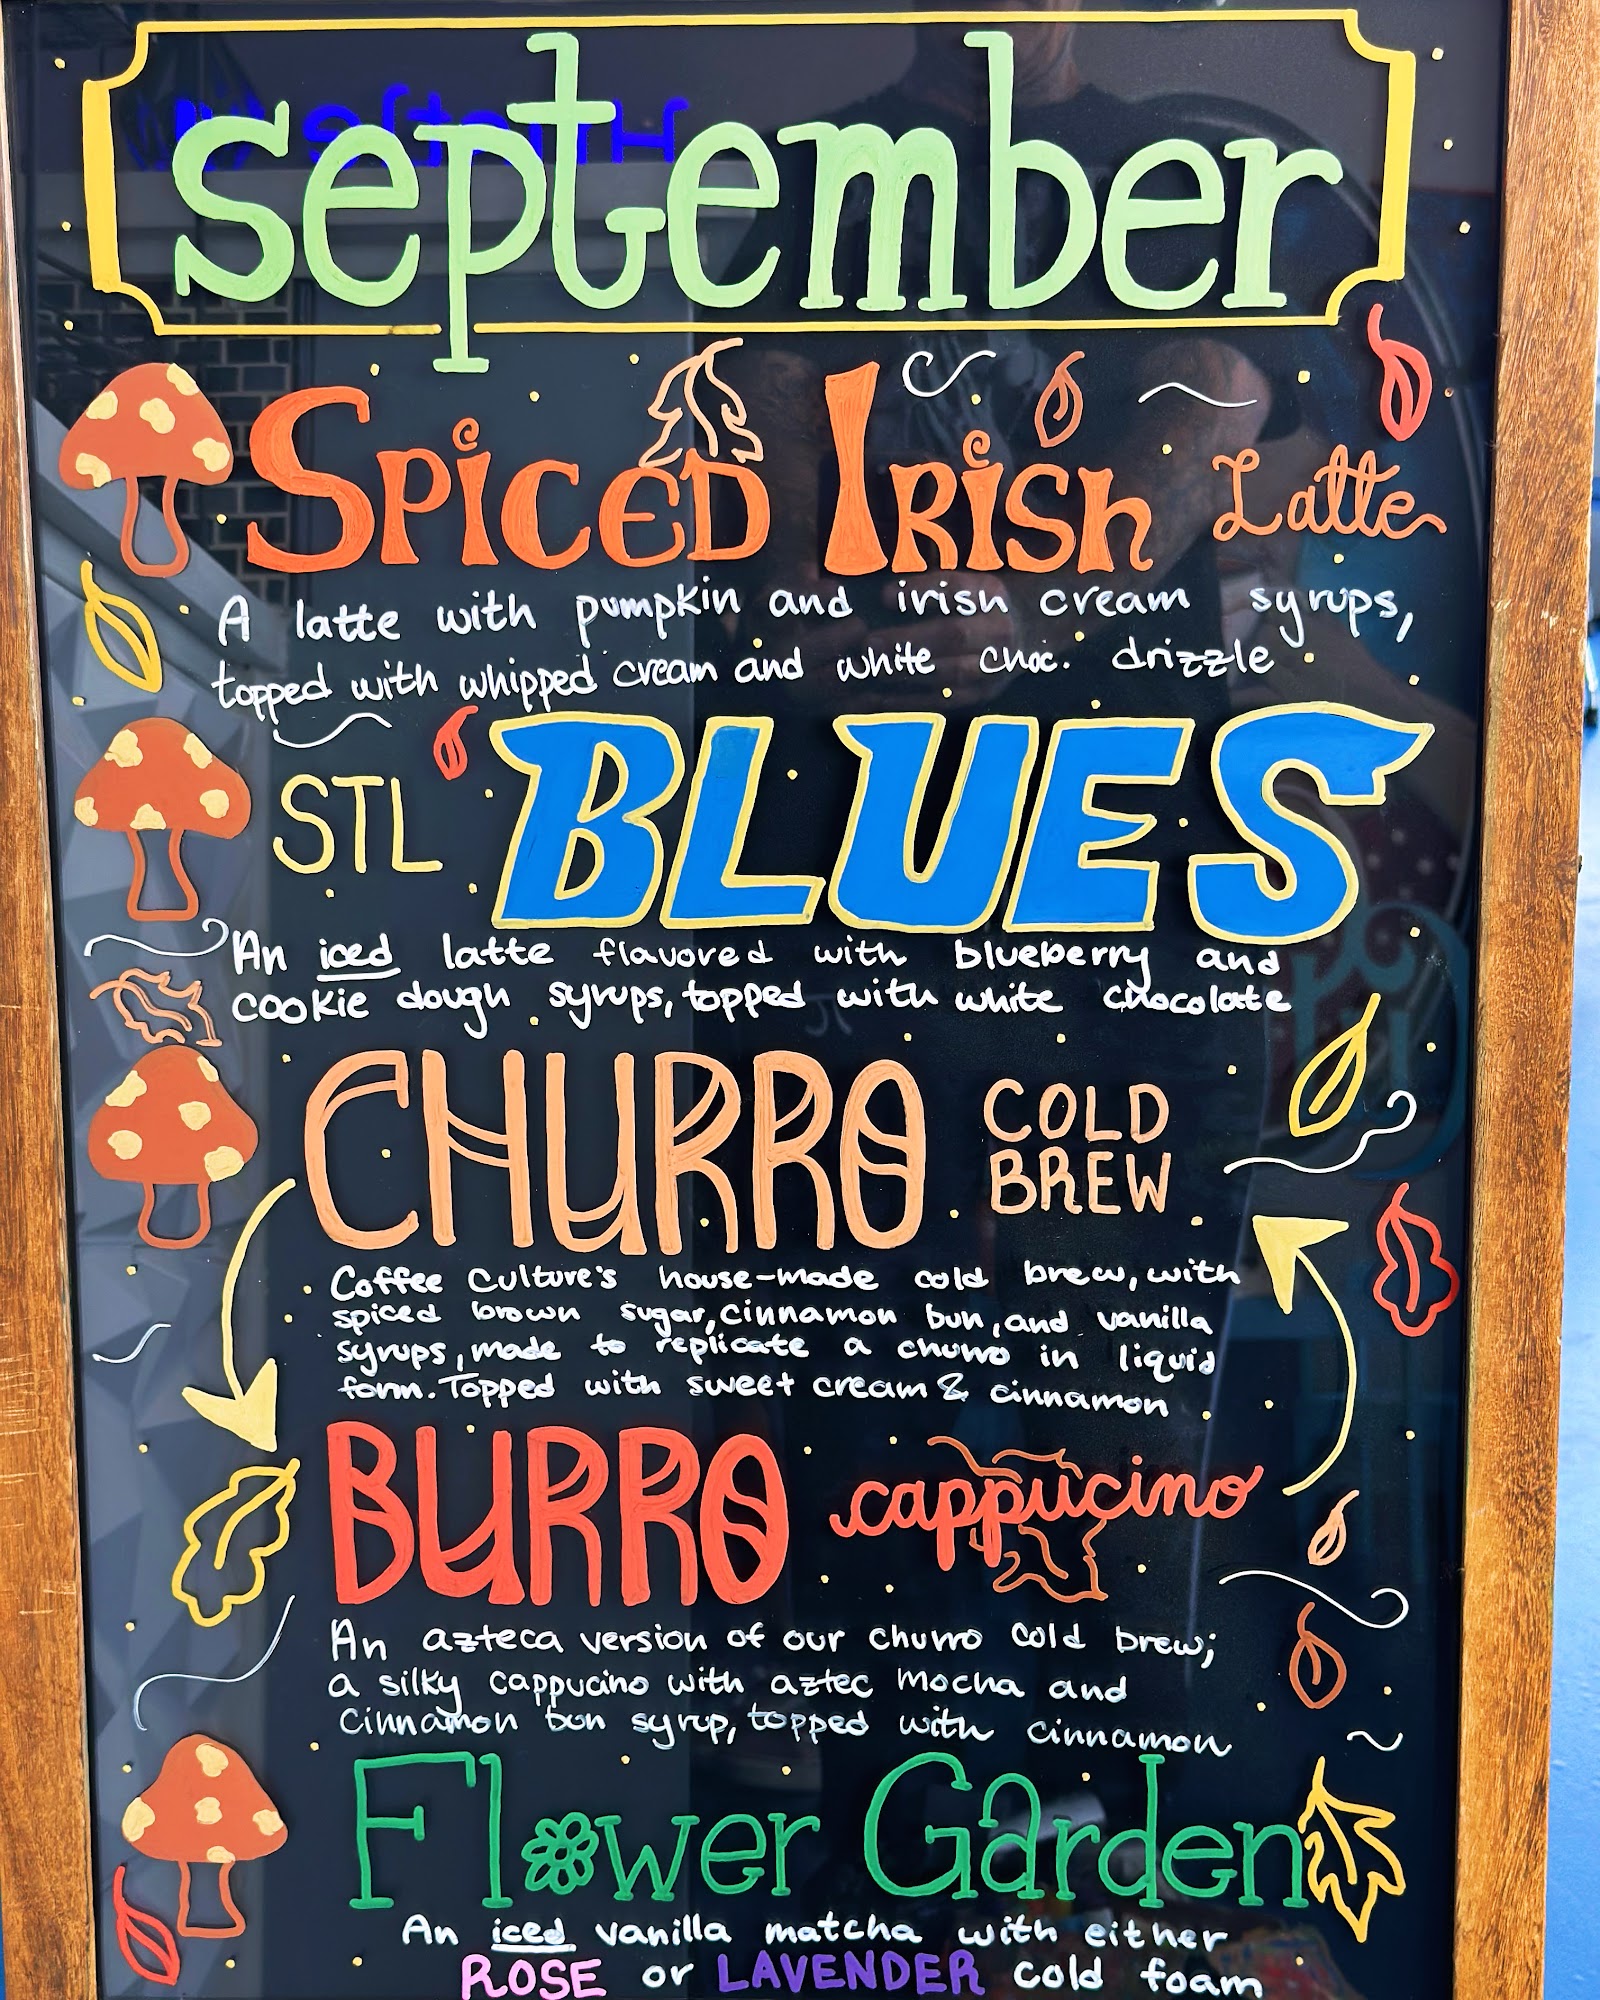 september
SPICED IRISH Latte
A latte with pumpkin and irish cream syrups,
topped with whipped cream and white choc. drizzle
STL BLUES
An iced latte flavored with blueberry and
cookie dough syrups, topped with white chocolate
CHURRO COLD BREW
Coffee Culture's house-made cold brew, with
spiced brown sugar, cinnamon bun, and vanilla
syrups, made to replicate a churro in liquid
form. Topped with sweet cream & cinnamon
BURRO cappucino
An azteca version of our churro cold brew;
a silky cappucino with aztec mocha and
cinnamon bun syrup, topped with cinnamon
Flower Garden
An iced vanilla matcha with either
ROSE or LAVENDER cold foam